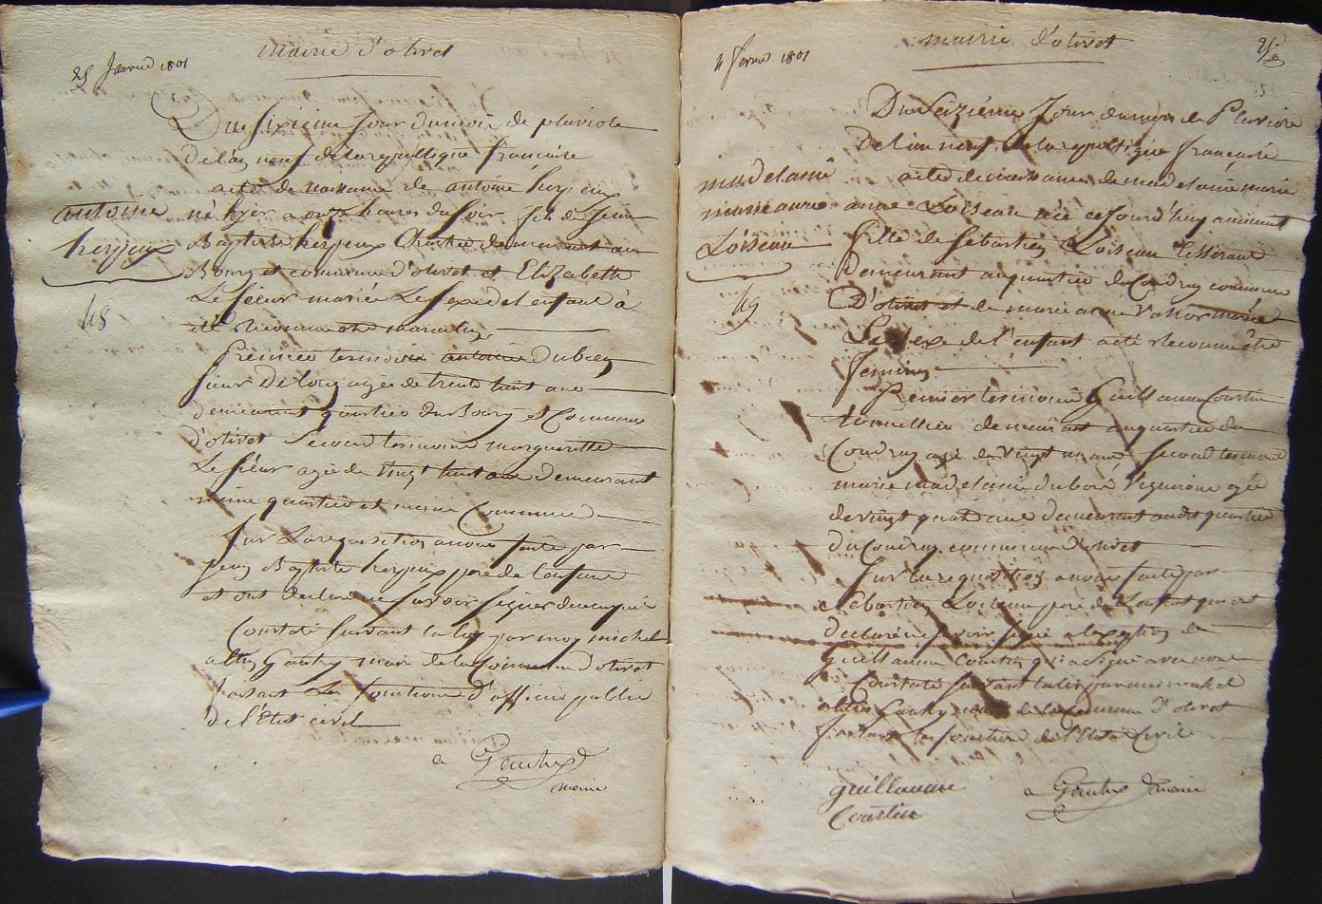 Mairie d'olivet
25 Janvier 1801
Du sixieme Jour du mois de pluviose
de l'an neuf de la republique française
acte de naissance de antoine herpeux
antoine
herpeux
48
né hyer a onze heures du soir fils de Jean
Baptiste herpeux Charetier demeurant au
Bourg et commune d'olivet et Elizabette
Le sieur mariée Le sexe de l'enfant à
été Reconnu etre masculin
Premier temoin antoine
agé de trente huit ans
demeurant quartier du Bourg et Commune
d'olivet second temoin marguerite
Le sieur agée de vingt huit ans demeurant
meme quartier et meme Commune
Sur La requisition a nous faite par
Jean Baptiste herpeux pere de l'enfant
et ont declaré ne savoir signer de ce enquis
Constaté suivant la loy par moy michel
Gautry maire de la Commune d'olivet
faisant Les fonctions d'officier public
de l'Etat civil
a Gautry
maire
Mairie d'olivet
4 fevrier 1801
25
Du Seizieme Jour du mois de Pluviose
De l'an neuf de la republique française
acte de naissance de madelaine marie
madelaine
marie anne
Loiseau
49
anne Loiseau née ce jourd'huy a minuit
fille de sebastien Loiseau Tisserant
demeurant au quartier du Coudray commune
D'olivet et de marie anne mariée
Le sexe de l'enfant a été Reconnu etre
feminin
Premier temoin Guillaume Courtin
tonnellier demeurant au quartier du
Coudray agé de vingt un ans second temoin
marie madelaine agée
de vingt quatre ans demeurant audit quartier
du Coudray commune d'olivet
Sur la requisition a nous faite par
sebastien Loiseau pere de L'enfant qui ont
declaré ne savoir signé a l'exception de
Guillaume Courtin qui a signé avec nous
Constaté suivant la loi par moi michel
Gautry maire de la Commune D'olivet
faisant les fonction de l'Etat Civil
guillaume
Courtin
a Gautry maire